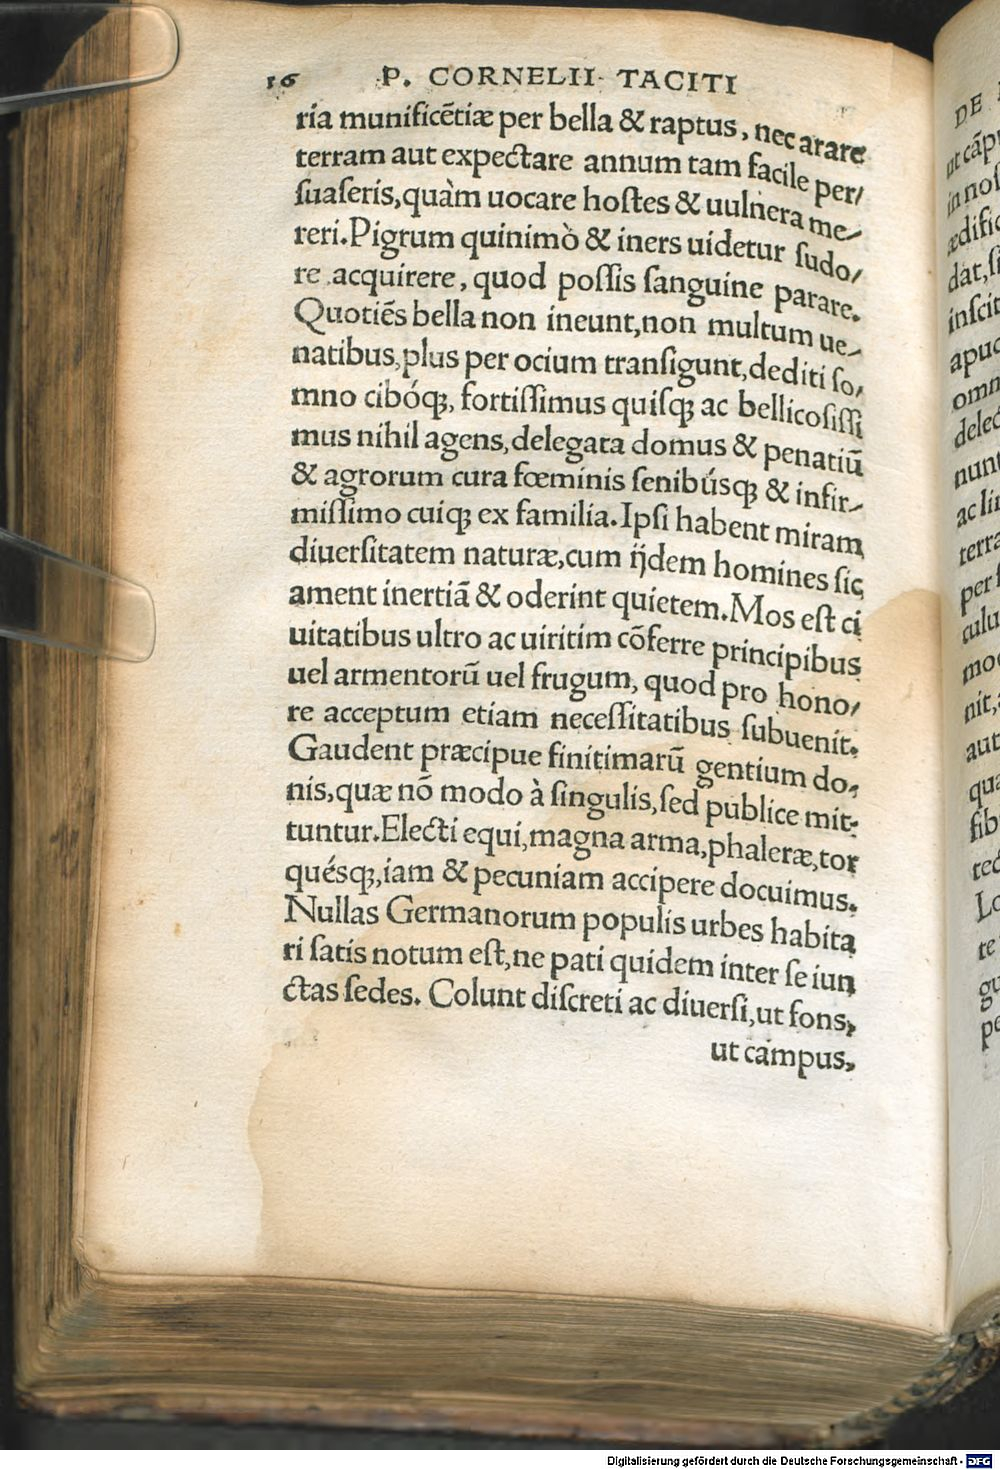 16 P. CORNELII TACITI
ria munificẽtiæ per bella & raptus, nec arare
terram aut expectare annum tam facile per/
ſuaſeris, quàm uocare hoſtes & uulnera me/
reri. Pigrum quinimò & iners uidetur ſudo/
re acquirere, quod poſſis ſanguine parare.
Quotiẽs bella non ineunt, non multum ue/
natibus, plus per ocium tranſigunt, dediti ſo/
mno cibóqꝫ, fortiſſimus quiſqꝫ ac bellicoſiſſi
mus nihil agens, delegata domus & penatiũ
& agrorum cura fœminis ſenibúsqꝫ & infir/
miſſimo cuiqꝫ ex familia. Ipſi habent miram
diuerſitatem naturæ, cum ijdem homines ſic
ament inertiã & oderint quietem. Mos eſt ci
uitatibus ultro ac uiritim cõferre principibus
uel armentorũ uel frugum, quod pro hono/
re acceptum etiam neceſſitatibus ſubuenit.
Gaudent præcipue finitimarũ gentium do/
nis, quæ nõ modo à ſingulis, ſed publice mit/
tuntur. Electi equi, magna arma, phaleræ, tor
quésqꝫ, iam & pecuniam accipere docuimus.
Nullas Germanorum populis urbes habita
ri ſatis notum eſt, ne pati quidem inter ſe iun
ctas ſedes. Colunt diſcreti ac diuerſi, ut fons,
ut campus,
DE
ut cãp
in noſ
ædific
dat, ſi
inſcit
apud
omn
delec
nunt
ac lin
terra
per ſ
culu
mod
nit,
aut
qua
ſib
tec
Lo
te
gu
pe
Digitalisierung gefördert durch die Deutsche Forschungsgemeinschaft - DFG